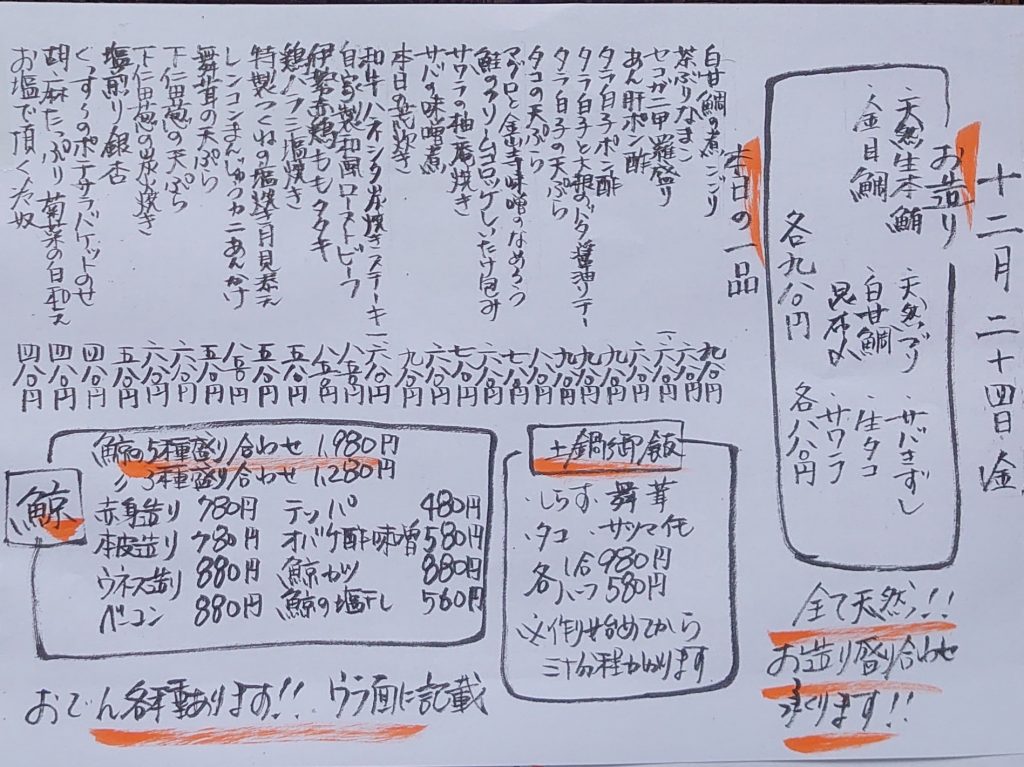 十二月二十四日・金
お造り
・天然生本鮪 ・天然ブリ ・サバきずし
・金目鯛 ・白甘鯛昆布〆 ・生タコ
・サワラ
各九八〇円 各八八〇円
全て天然!!
お造り盛り合わせ
承ります!!
本日の一品
白甘鯛煮こごり 九八〇円
茶ぶりなまこ 六八〇円
セコガニ甲羅盛り
あん肝ポン酢 九八〇円
タラ白子ポン酢 九八〇円
タラ白子と大根のバタ醤油ソテー 九八〇円
タラ白子の天ぷら 九八〇円
タコの天ぷら 八八〇円
マグロと金山寺味噌のなめろう 七八〇円
鮭のクリームコロッケしいたけ包み 六八〇円
サワラの柚庵焼き 七八〇円
サバの味噌煮 六八〇円
本日の兜炊き 九八〇円
和牛ハネシタ炭焼きステーキ 一六八〇円
自家製和風ローストビーフ 八五〇円
伊勢赤鶏ももタタキ 八五〇円
鶏ハラミ塩焼き 五八〇円
特製つくねの塩焼き月見添え 五八〇円
レンコンまんじゅうカニあんかけ 八五〇円
舞茸の天ぷら 五八〇円
下仁田葱の天ぷら 六八〇円
下仁田葱の炭焼き 六八〇円
塩煎り銀杏 五八〇円
くんすうのポテサラバゲットのせ 四八〇円
胡麻たっぷり 菊菜の白和え 四八〇円
お塩で頂くたたき 四八〇円
土鍋御飯
・しらす ・舞茸
・タコ ・サツマイモ
各 1合 980円
ハーフ 580円
※作り始めてから
三十分程かかります
鯨
鯨の5種盛り合わせ 1,980円
〃 3種盛り合わせ 1,280円
赤身造り 780円 テッパ 480円
本皮造り 780円 オバケ酢味噌 580円
ウネス造り 880円 鯨カツ 880円
ベーコン 880円 鯨の塩干し 560円
おでん各種あります!! ウラ面に記載